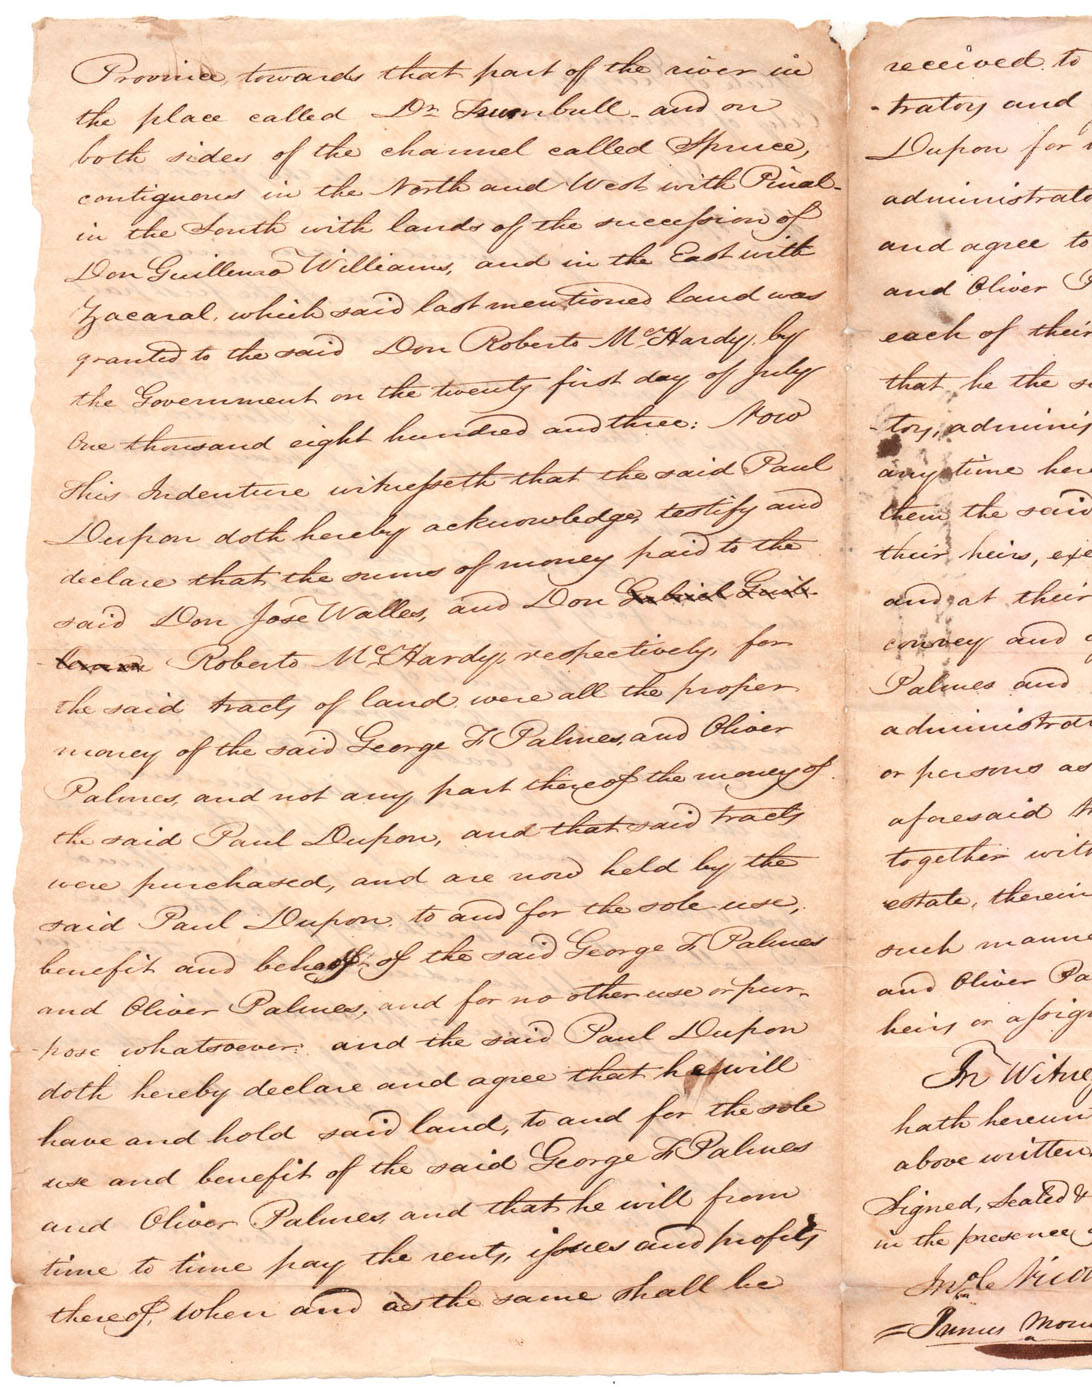 Province, towards that part of the river in
the place called Dr Turnbull - and on
both sides of the channel called Spruce,
contiguous in the North and West with Pinal-
in the South with lands of the succession of
Don Guillermo Williams, and in the East with
Zacaral, which said last mentioned land was
granted to the said Don Roberto McHardy, by
the Government on the twenty first day of July
One thousand eight hundred and three: Now
This Indenture witnesseth that the said Paul
Dupon doth hereby acknowledge, testify and
declare that the sums of money paid to the
said Don Jose Walles, and Don Gabriel Guil-
Roberto McHardy, respectively, for
the said tracts of land were all the proper
money of the said George F Palmes, and Oliver
Palmes, and not any part thereof the money of
the said Paul Dupon, and that said tracts
were purchased, and are now held by the
said Paul Dupon, to and for the sole use,
benefit and behoof of the said George F Palmes
and Oliver Palmes, and for no other use or pur-
pose whatsoever: and the said Paul Dupon
doth hereby declare and agree that he will
have and hold said land, to and for the sole
use and benefit of the said George F Palmes
and Oliver Palmes, and that he will from
time to time pay the rents, issues and profits
thereof, when and as the same shall be
received to
-trators and
Dupon for
administrato
and agree to
and Oliver P
each of their
that he the s
-tors, adminis
any time here
them the said
their heirs, exe
and at their
convey and
Palmes and
administrat
or persons as
aforesaid tr
together with
estate, therein
such manne
and Oliver Pa
heirs or assign
In Witnes
hath hereun
above written
Signed, Sealed &
in the presence
James